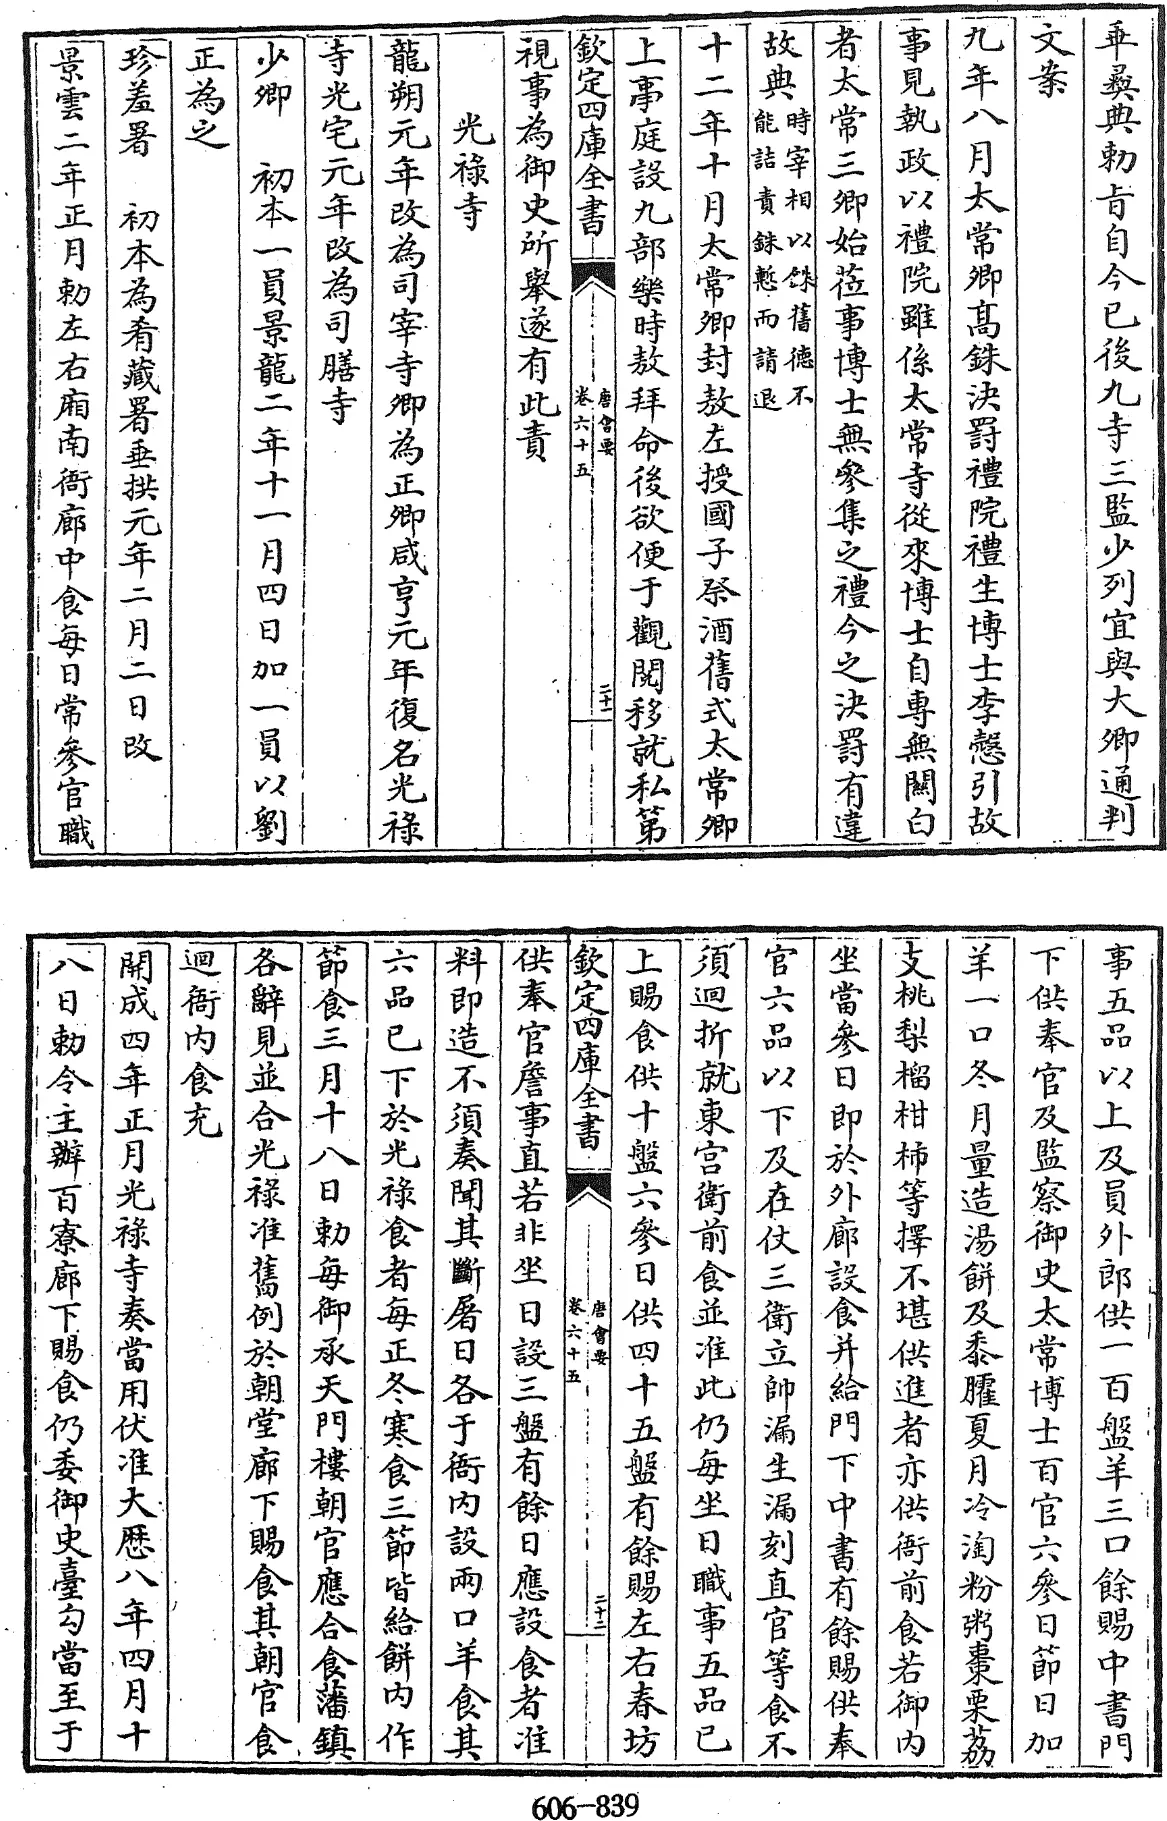 垂彛典勅㫖自今已後九寺三監少列宜與大卿通判
文案
九年八月太常卿髙銖決罸禮院禮生博士李慤引故
事見執政以禮院雖係太常寺從來博士自專無闗白
者太常三卿始蒞事博士無參集之禮今之決罸有違
故典時宰相以銖舊德不
能詰責銖慙而請退
十二年十月太常卿封敖左授國子祭酒舊式太常卿
上事庭設九部樂時敖拜命後欲便于觀閱移就私第
欽定四庫全書
唐會要
卷六十五
二十一
視事為御史所舉遂有此責
光祿寺
龍朔元年改為司宰寺卿為正卿咸亨元年復名光祿
寺光宅元年改為司膳寺
少卿 初本一員景龍二年十一月四日加一員以劉
正為之
珍羞署 初本為肴藏署垂拱元年二月二日改
景雲二年正月勅左右廂南衙廊中食每日常參官職
事五品以上及員外郎供一百盤羊三口餘賜中書門
下供奉官及監察御史太常博士百官六參日節日加
羊一口冬月量造湯餅及黍臛夏月冷淘粉粥棗栗荔
支桃梨榴柑柿等擇不堪供進者亦供衙前食若御内
坐當參日即於外廊設食并給門下中書有餘賜供奉
官六品以下及在仗三衛立帥漏生漏刻直官等食不
須迴折就東宫衛前食並准此仍每坐日職事五品已
上賜食供十盤六參日供四十五盤有餘賜左右春坊
欽定四庫全書
唐會要
卷六十五
二十二
供奉官詹事直若非坐日設三盤有餘日應設食者准
料即造不須奏聞其斷屠日各于衙内設兩口羊食其
六品已下於光祿食者每正冬寒食三節皆給餅内作
節食三月十八日勅每御承天門樓朝官應合食藩鎮
各辭見並合光祿准舊例於朝堂廊下賜食其朝官食
迴衙内食充
開成四年正月光祿寺奏當用伏准大厯八年四月十
八日勅令主辦百寮廊下賜食仍委御史臺勾當至于
606-839